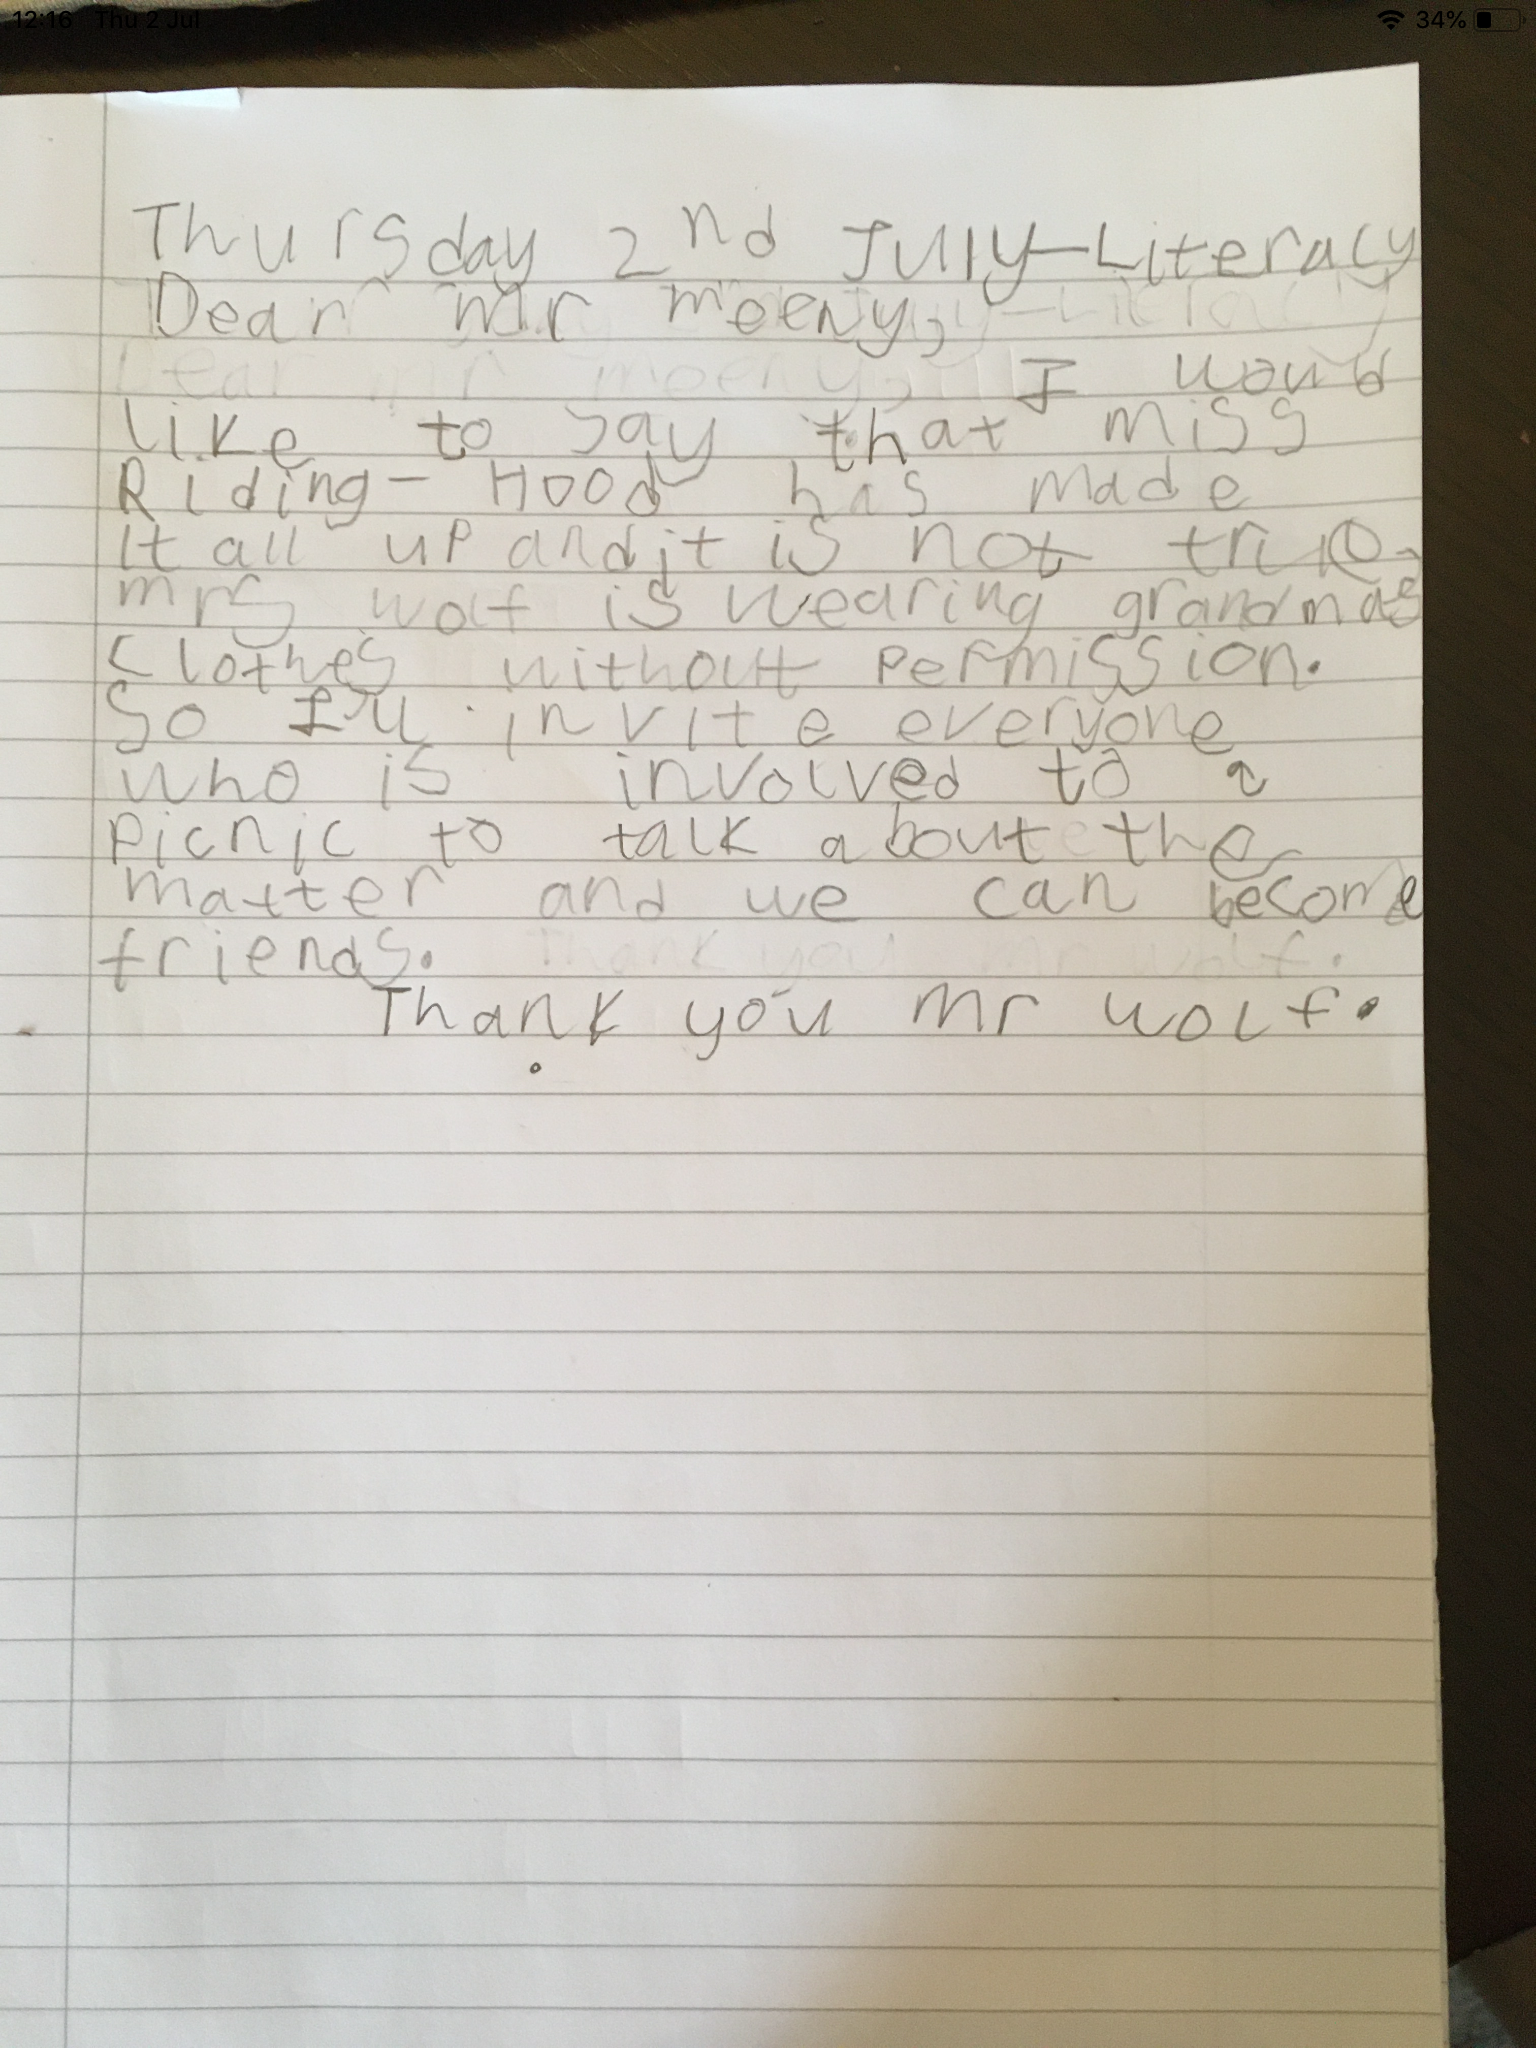 12:16 Thu 2 Jul 34%
Thursday 2nd July-Literacy
Dear mr moeny,
I would
like to say that miss
Riding-Hood has made
it all up and it is not true.
mrs wolf is wearing grandmas
clothes without permission.
So I'll invite everyone
who is involved to a
picnic to talk about the
matter and we can become
friends.
Thank you mr wolf.